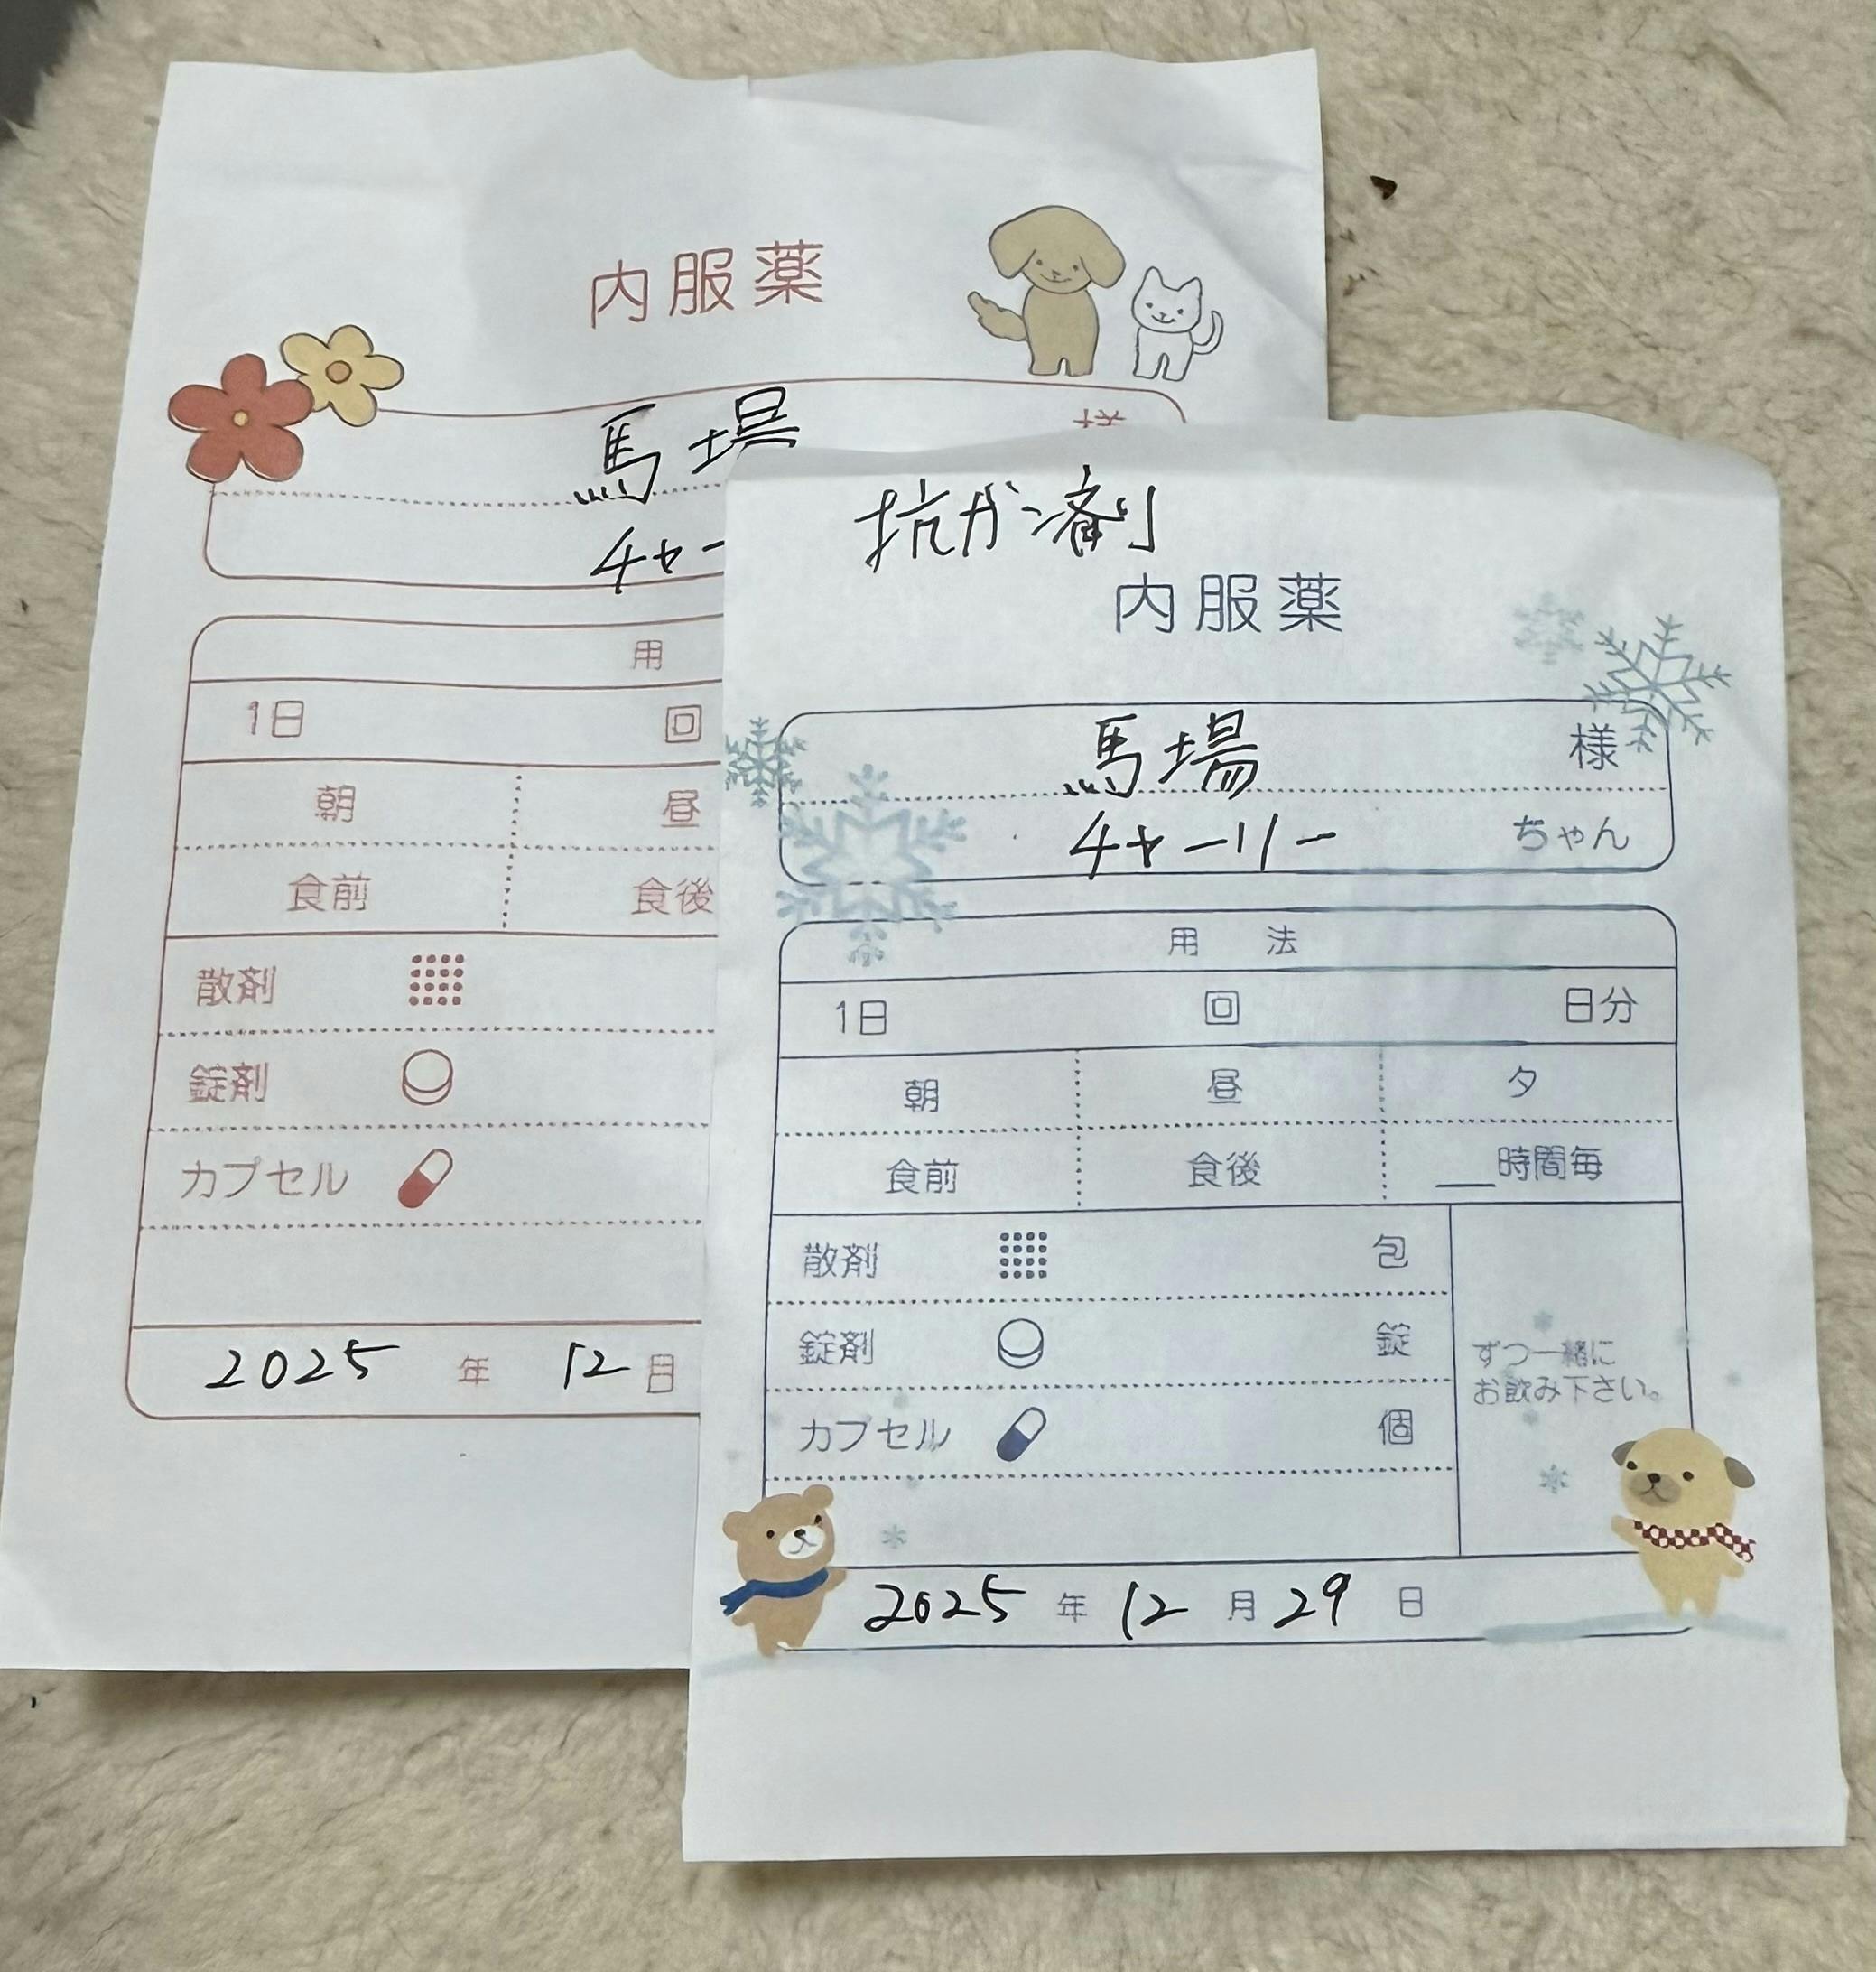 内服薬
馬場 様
チャー
用
1日 回
朝 昼
食前 食後
散剤
錠剤
カプセル
2025 年 12 日
抗がん剤
内服薬
馬場 様
チャーリー ちゃん
用 法
1日 回 日分
朝 昼 夕
食前 食後 __時間毎
散剤 包
錠剤 錠
カプセル 個
ずつ一緒に
お飲み下さい。
2025 年 12 月 29 日